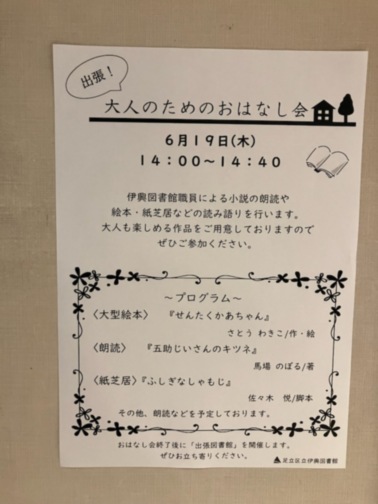 出張!
大人のためのおはなし会
6月19日(木)
14:00~14:40
伊興図書館職員による小説の朗読や
絵本・紙芝居などの読み語りを行います。
大人も楽しめる作品をご用意しておりますので
ぜひご参加ください。
~プログラム~
〈大型絵本〉 『せんたくかあちゃん』
さとう わきこ/作・絵
〈朗読〉 『五助じいさんのキツネ』
馬場 のぼる/著
〈紙芝居〉『ふしぎなしゃもじ』
佐々木 悦/脚本
その他、朗読などを予定しております。
おはなし会終了後に「出張図書館」を開催します。
ぜひお立ち寄りください。
足立区立伊興図書館